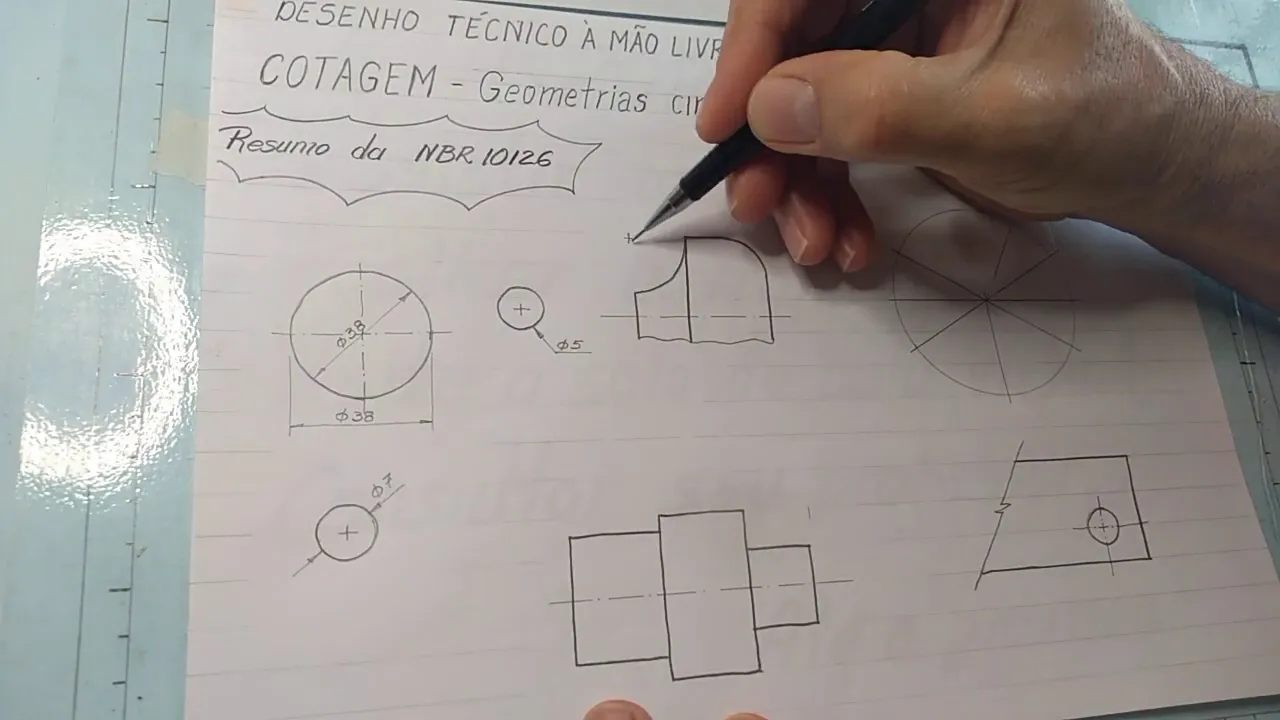 DESENHO TÉCNICO À MÃO LIVR
COTAGEM - Geometrias cir
Resumo da NBR 10126
φ38
φ5
φ38
φ7